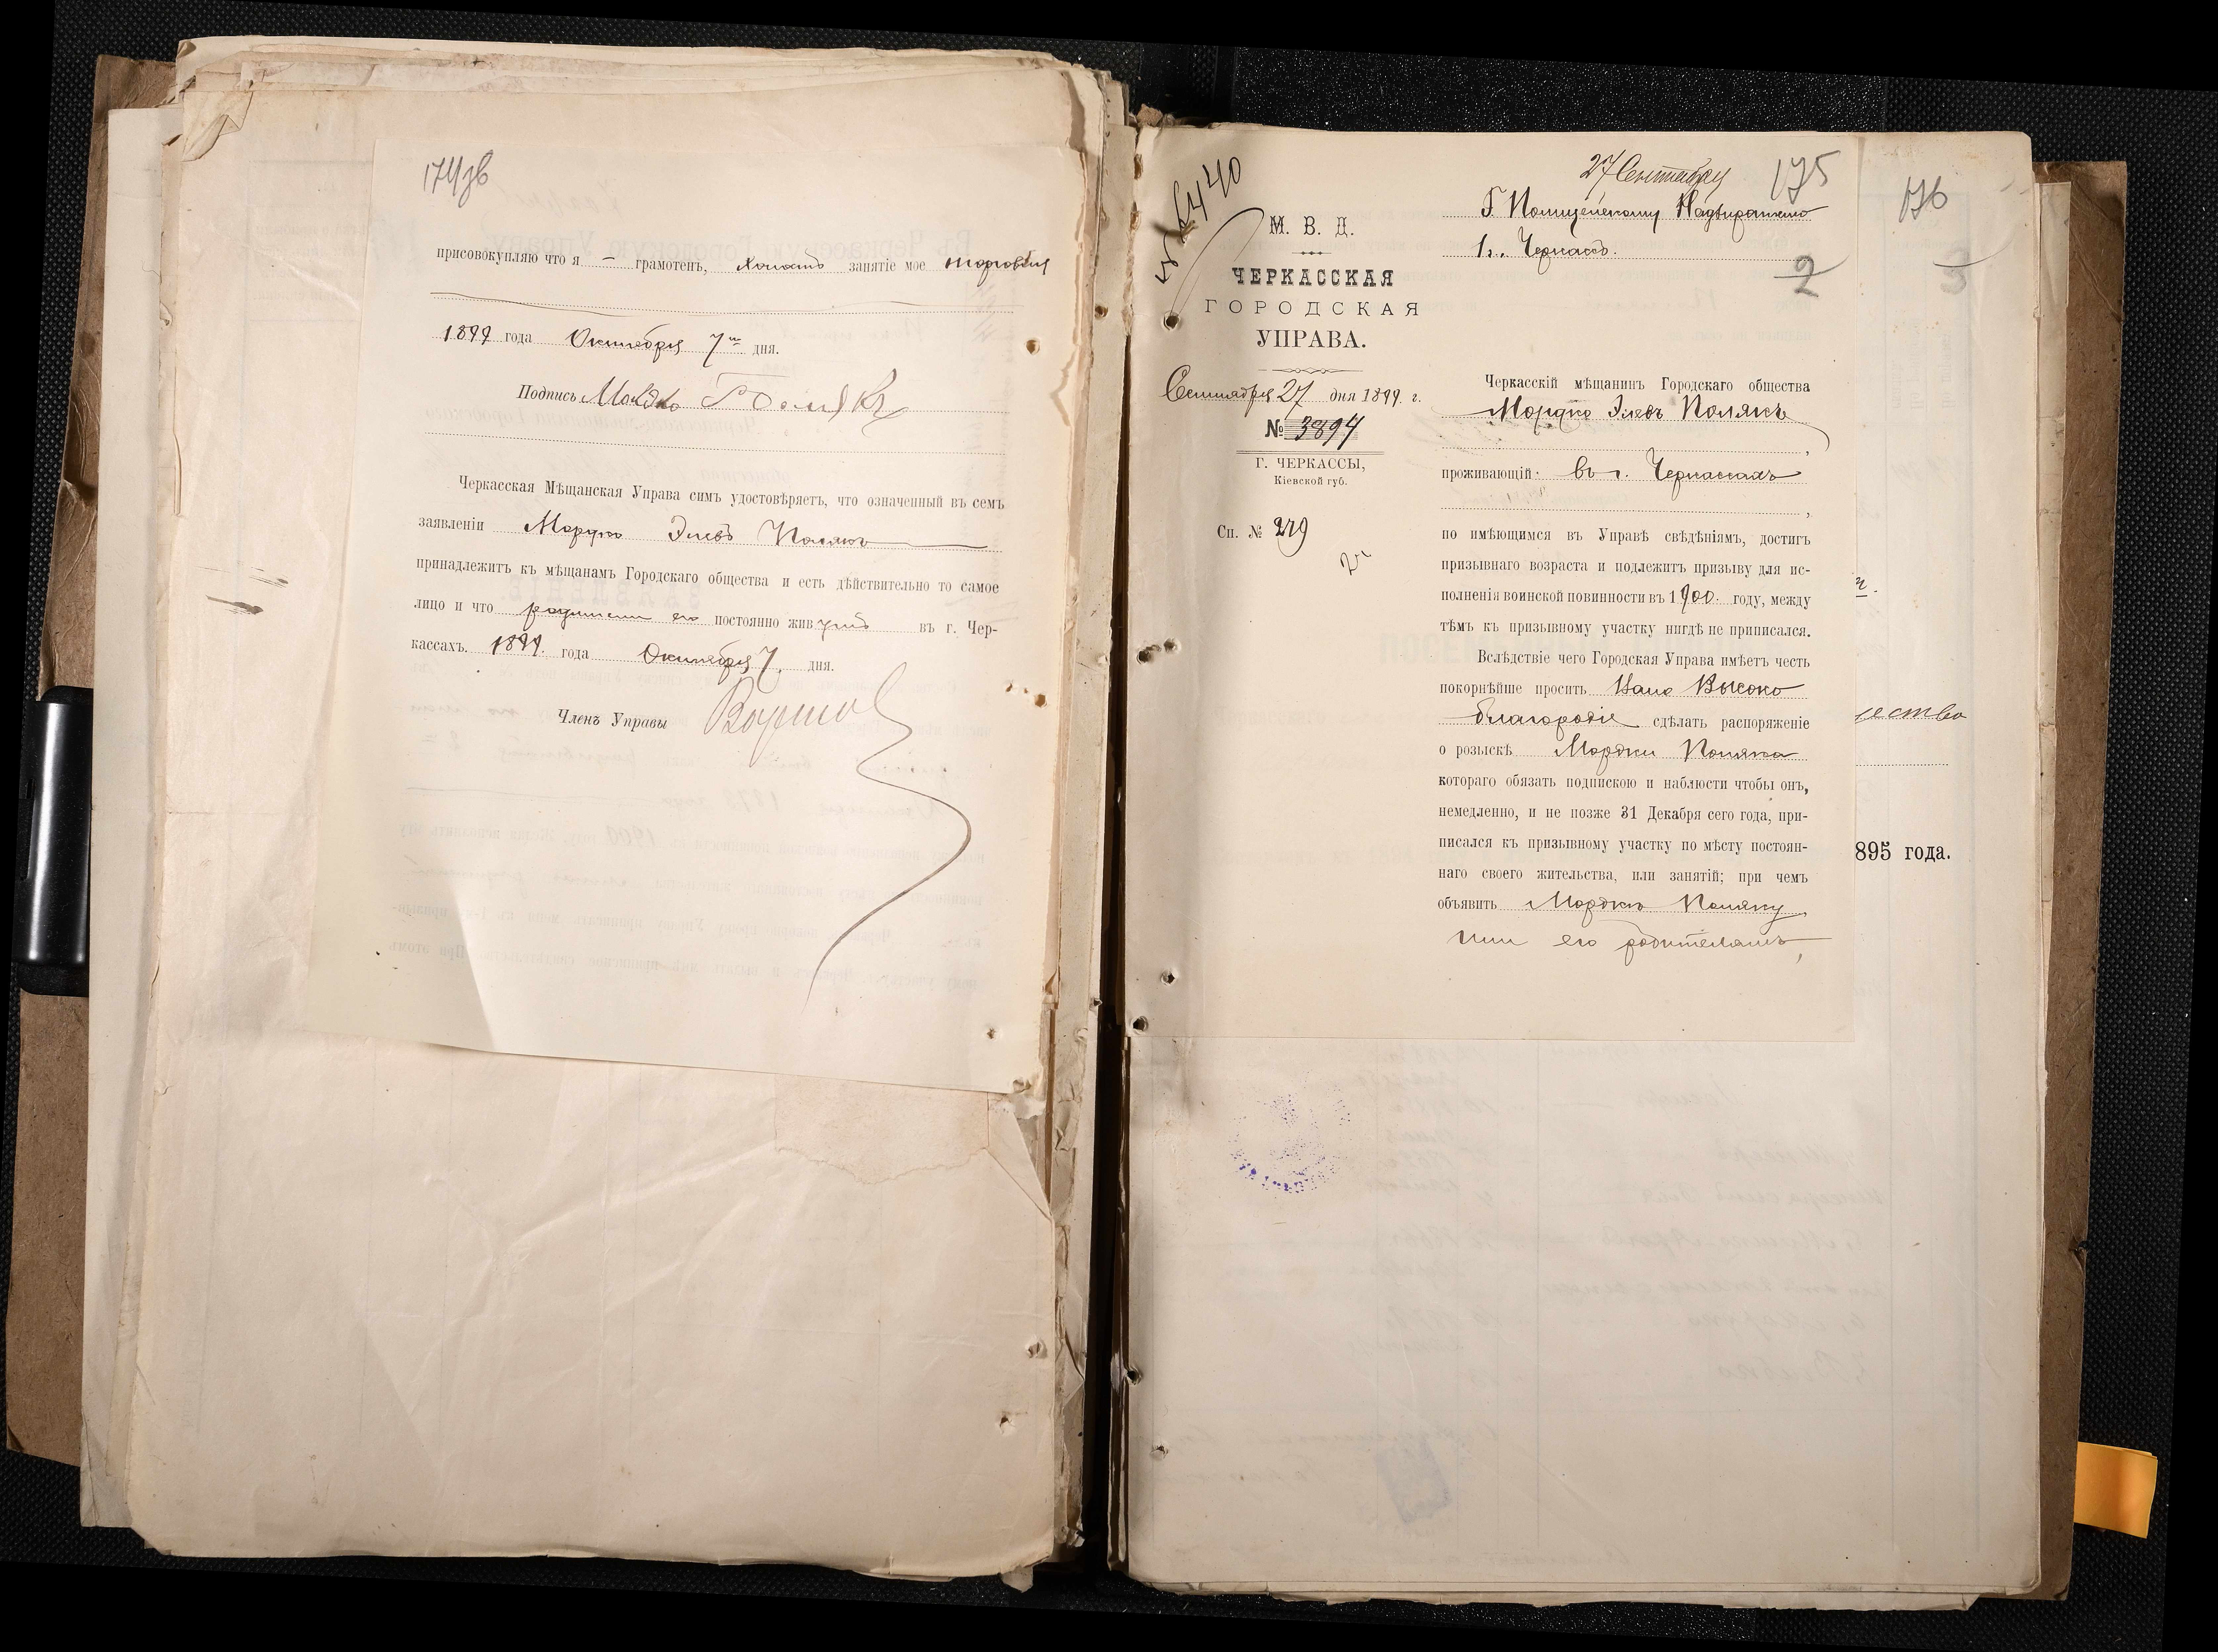 174зв
присовокупляю что я – грамотенъ, холостъ занятіе мое торговля
1899 года Октября 7го дня.
Подпись Полякъ
Черкасская Мѣщанская Управа симъ удостовѣряетъ, что означенный въ семъ
заявленіи Мордко Элевъ Полякъ
принадлежитъ къ мѣщанамъ Городскаго общества и есть дѣйствительно то самое
лицо и что родители его постоянно живутъ въ г. Чер-
кассахъ. 1899 года Октября 7 дня.
Членъ Управы
6440
М. В. Д.
ЧЕРКАССКАЯ
ГОРОДСКАЯ
УПРАВА.
Сентября 27 дня 1899 г.
№ 3894
Г. ЧЕРКАССЫ,
Кіевской губ.
Сп. № 219
27 Сентября
175
Г. Полицейскому Надзирателю
1 ч. Черкассъ.
2
Черкасскій мѣщанинъ Городскаго общества
Мордко Элевъ Полякъ,
проживающій въ г. Черкассахъ,
по имѣющимся въ Управѣ свѣдѣніямъ, достигъ
призывнаго возраста и подлежитъ призыву для ис-
полненія воинской повинности въ 1900 году, между
тѣмъ къ призывному участку нигдѣ не приписался.
Вслѣдствіе чего Городская Управа имѣетъ честь
покорнѣйше просить Ваше Высоко
благородіе сдѣлать распоряженіе
о розыскѣ Мордки Поляка
котораго обязать подпискою и наблюсти чтобы онъ,
немедленно, и не позже 31 Декабря сего года, при-
писался къ призывному участку по мѣсту постоян-
наго своего жительства, или занятій; при чемъ
объявить Мордкѣ Поляку
или его родителямъ,
176
3
895 года.